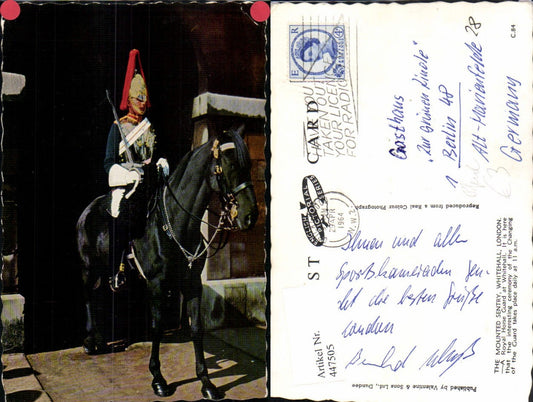 C.84
E R
HAVE YOU
TAKEN OUT
YOUR LICENCE
FOR RADIO
1964
N.W.3.
POST CARD
Gasthaus
"Zur grünen Linde"
1 Berlin 48
Alt-Marienfelde 28
Germany
63
Ihnen und allen
Sportskameraden sen-
det die besten Grüße
London
Reproduced from a Real Colour Photograph
THE MOUNTED SENTRY, WHITEHALL, LONDON.
A Royal Horse Guard at Whitehall. It is here
that the interesting ceremony of the Changing
of the Guard takes place daily at 11 a.m.
Published by Valentine & Sons Ltd., Dundee
Artikel Nr.
447505